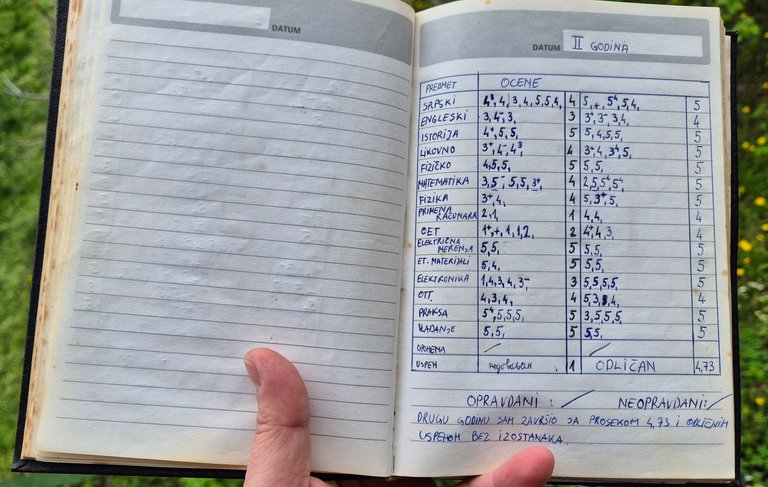 DATUM
DATUM II GODINA
PREDMET OCENE
SRPSKI 4³, 4, 3, 4, 5, 5, 4, 4 5, +, 5⁴, 5, 4, 5
ENGLESKI 3, 4⁻, 3, 3 3⁺, 3⁻, 3, 4, 4
ISTORIJA 4⁺, 5, 5, 5 5, 4, 5, 5, 5
LIKOVNO 3⁺, 4⁻, 4³, 4 3⁺, 4, 3⁴, 5, 5
FIZIČKO 4, 5, 5, 5 5, 5, 5
MATEMATIKA 3, 5⁻, 5, 5, 3⁺, 4 2, 5, 5⁴, 5⁻, 5
FIZIKA 3⁺, 4, 4 5, 3⁺, 5, 5
PRIMENA RAČUNARA 2, 1, 1 4, 4, 4
OET 1⁺, +, 1, 1, 2, 2 4⁺, 4, 3, 4
ELEKTRIČNA MERENJA 5, 5, 5 5, 5, 5
ET. MATERIJALI 5, 4, 5 5, 5, 5
ELEKTRONIKA 1, 4, 3, 4, 3⁻ 3 5, 5, 5, 5, 5
OTT 4, 3, 4, 4 5, 3, 4, 4
PRAKSA 5⁴, 5, 5, 5, 5 3, 5, 5, 5, 5
VLADANJE 5, 5, 5 5, 5, 5
OPOMENA / /
USPEH 1 ODLIČAN 4,73
OPRAVDANI: / NEOPRAVDANI: /
DRUGU GODINU SAM ZAVRŠIO SA PROSEKOM 4,73 I ODLIČNIM
USPEHOM BEZ IZOSTANAKA.